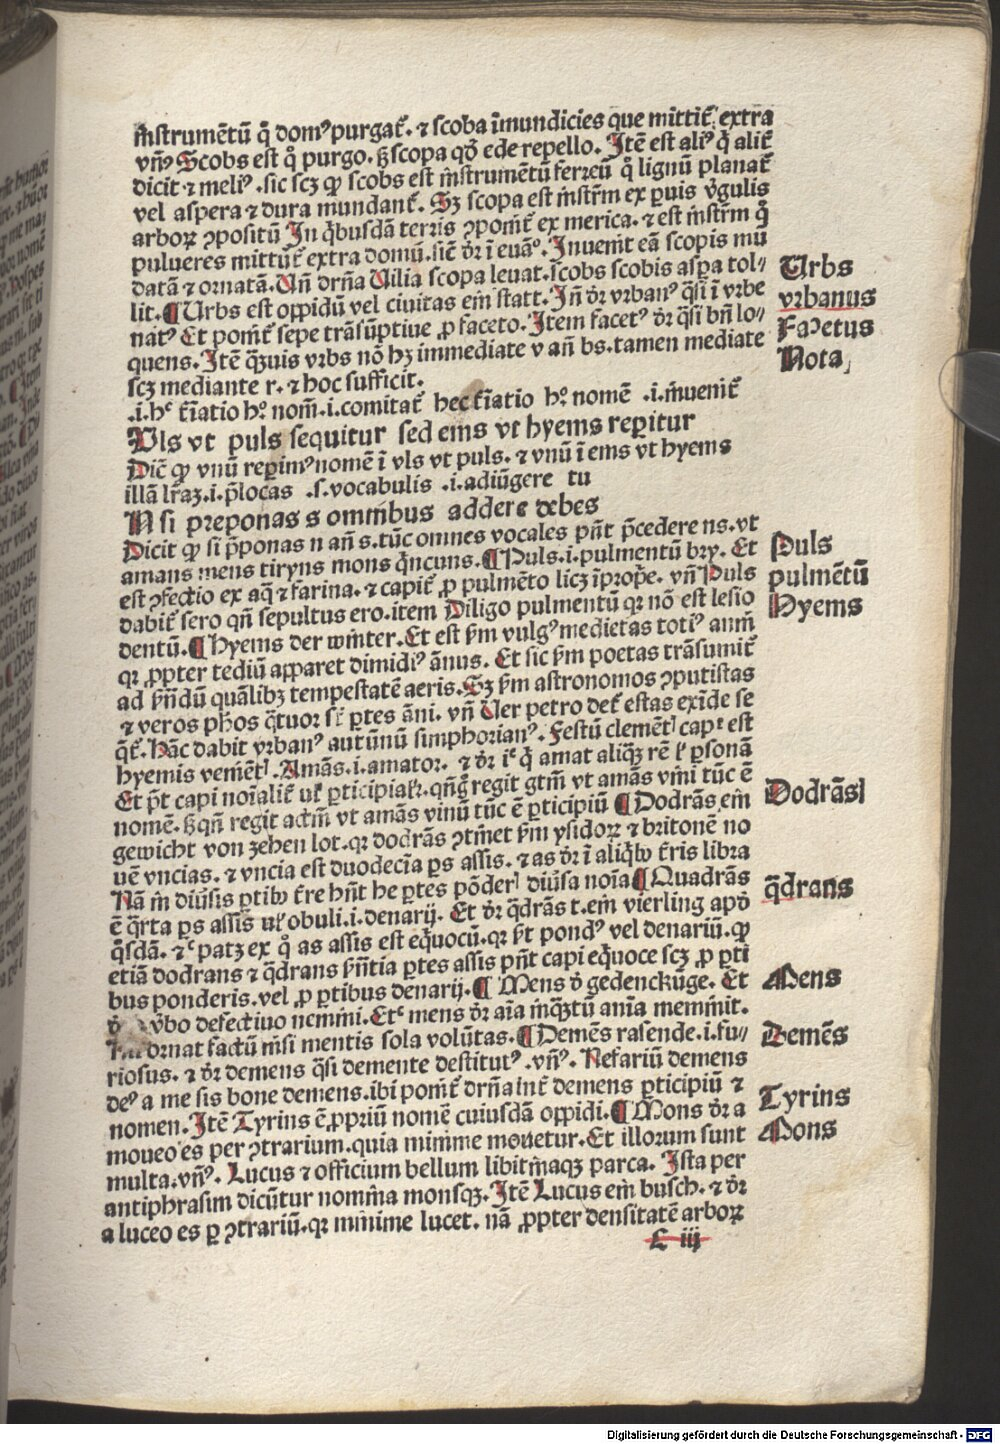 instrumētū q̄ domꝰ purgat̄. ⁊ scoba īmundicies que mittit̄ extra
vn̄ꝰ Scobs est q̊ purgo. ꝫ scopa qđ ede repello. Itē est aliꝰ q̄ alit̄
dicit ⁊ meliꝰ. sic scꝫ ꝙ scobs est īnstrumētū ferreū q̊ lignū planat̄
vel aspera ⁊ dura mundant̄. Sꝫ scopa est īnstr̄m ex ꝑuis v̄gulis
arboꝝ ꝯpositū In q̇busdā terris ꝯponit̄ ex merica. ⁊ est īnstr̄m q̊
pulueres mittūt̄ extra domū. sic̄ dr̄ ī euāº. Inuenit eā scopis mū
datā ⁊ ornatā. Vn̄ dr̄na Vilia scopa leuat. scobs scobis asꝑa tol⸗
lit. ¶ Urbs est oppidū vel ciuitas ein statt. Īn̄ dr̄ vrbanꝰ q̄si ī vrbe
natꝰ Et ponit̄ sepe trāsūptiue ꝓ faceto. Item facetꝰ dr̄ q̄si bn̄ lo⸗
quens. Itē q̄ꝫuis vrbs nō hꝫ immediate v an̄ bs. tamen mediate
scꝫ mediante r. ⁊ hoc sufficit.
.i. hͨ t̄iatio hº nom̄. i. comitat̄ hec t̄iatio hº nomē .i. inuenit̄
Uls vt puls sequitur sed ems vt hyems reperitur
Dic̄ ꝙ vnū reperimꝰ nomē ī vls vt puls. ⁊ vnū ī ems vt hyems
illā lr̄aꝫ. i. p̄locas .s. vocabulis .i. adiūgere tu
N si preponas s omnibus addere debes
Dicit ꝙ si p̄ponas n an̄ s. tūc omnes vocales pn̄t p̄cedere ns. vt
amans mens tiryns mons q̄ncuns. ¶ Puls. i. pulmentū bry. Et
est ꝯfectio ex aq̄ ⁊ farina. ⁊ capit̄ ꝓ pulmēto licꝫ īproꝑe. vn̄ Puls
dabit̄ sero qn̄ sepultus ero. item Diligo pulmentū qꝛ nō est lesio
dentū. ¶ Hyems der winter. Et est ẜm vulgꝰ medietas totiꝰ anni
qꝛ ꝓpter tediū apparet dimidiꝰ ānus. Et sic ẜm poetas trāsumit̄
ad ẜn̄dū quālibꝫ tempestatē aeris. Sꝫ ẜm astronomos ꝯputistas
⁊ veros ph̄os q̄tuor st̄ ꝑtes āni. vn̄ Uer petro det̄ estas exīde se
q̄t̄. Hāc dabit vrbanꝰ autūnū simphorianꝰ. Festū clemētꝭ capͭ est
hyemis venientꝭ. Amās. i. amator. ⁊ dr̄ iͨ q̄ amat aliq̄ꝫ rē ꝉ ꝑsonā
Et pt̄ capi noīalit̄ uꝉ ꝑticipialr̄. qn̄ḡ regit gtm̄ vt amās vini tūc ē
nomē. ꝫ qn̄ regit actm̄ vt amās vinū tūc ē ꝑticipiū ¶ Dodrās ein
gewicht von zehen lot. qꝛ dodrās ꝯtinet ẜm ysidoꝝ ⁊ britonē no
uē vncias. ⁊ vncia est duodecīa ꝑs assis. ⁊ as dr̄ ī aliq̇bꝰ t̄ris libra
Nā in diūsis ꝑtibꝰ t̄re hn̄t he ꝑtes pōderꝭ diūsa noīa ¶ Quadrās
ē q̄rta ꝑs assis uꝉ obuli. i. denarij. Et dr̄ q̄drās t. ein vierling apđ
q̄sdā. ⁊ͨ patꝫ ex q̊ as assis est eq̇uocū. qꝛ ẜt pondꝰ vel denariū. ꝙ
etiā dodrans ⁊ q̄drans ẜn̄tia ꝑtes assis pn̄t capi eq̇uoce scꝫ ꝓ ꝑti
bus ponderis. vel ꝓ ꝑtibus denarij. ¶ Mens đ gedenckūge. Et
v̄bo defectiuo memini. Etͨ mens dr̄ aīa inq̄ꝫtū anīa meminit.
ornat factū nisi mentis sola volūtas. ¶ Demēs rasende. i. fu⸗
riosus. ⁊ dr̄ demens q̄si demente destitutꝰ. vn̄ꝰ. Nefariū demens
deꝰ a me sis bone demens. ibi ponit̄ dr̄na int̄ demens ꝑticipiū ⁊
nomen. Itē Tyrins ē ꝓpriū nomē cuiusdā oppidi. ¶ Mons dr̄ a
moueo es per ꝯtrarium. quia minime mouetur. Et illorum sunt
multa. vn̄ꝰ. Lucus ⁊ officium bellum libitinaqꝫ parca. Ista per
antiphrasim dicūtur nomina monsqꝫ. Itē Lucus ein busch. ⁊ dr̄
a luceo es ꝑ ꝯtrariū. qꝛ minime lucet. nā ꝓpter densitatē arboꝝ
L iij
Urbs
vrbanus
Facetus
Nota
Puls
pulmētū
Hyems
Dodrās
q̄drans
Mens
Demēs
Tyrins
Mons
Digitalisierung gefördert durch die Deutsche Forschungsgemeinschaft - DFG